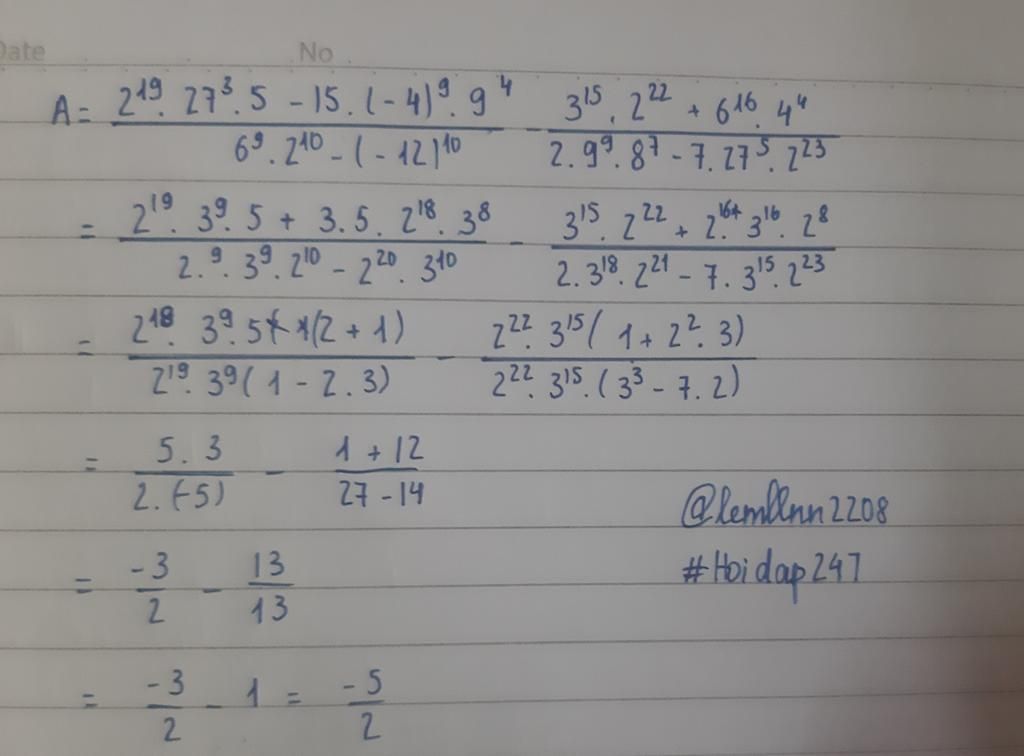 Date No
A = \frac{2^{19} . 27^3 . 5 - 15 . (-4)^9 . 9^4}{6^9 . 2^{10} - (-12)^{10}} - \frac{3^{15} . 2^{22} + 6^{16} . 4^4}{2 . 9^9 . 8^7 - 7 . 27^5 . 2^{23}}
= \frac{2^{19} . 3^9 . 5 + 3 . 5 . 2^{18} . 3^8}{2.^9 . 3^9 . 2^{10} - 2^{20} . 3^{10}} - \frac{3^{15} . 2^{22} + 2.^{16} 3^{16} . 2^8}{2 . 3^{18} . 2^{21} - 7 . 3^{15} . 2^{23}}
= \frac{2^{18} . 3^9 . 5 (2 + 1)}{2^{19} . 3^9 (1 - 2 . 3)} - \frac{2^{22} . 3^{15} (1 + 2^2 . 3)}{2^{22} . 3^{15} . (3^3 - 7 . 2)}
= \frac{5 . 3}{2 . (-5)} - \frac{1 + 12}{27 - 14}
@lemllnn2208
= \frac{-3}{2} - \frac{13}{13}
#Hoidap247
= \frac{-3}{2} - 1 = \frac{-5}{2}